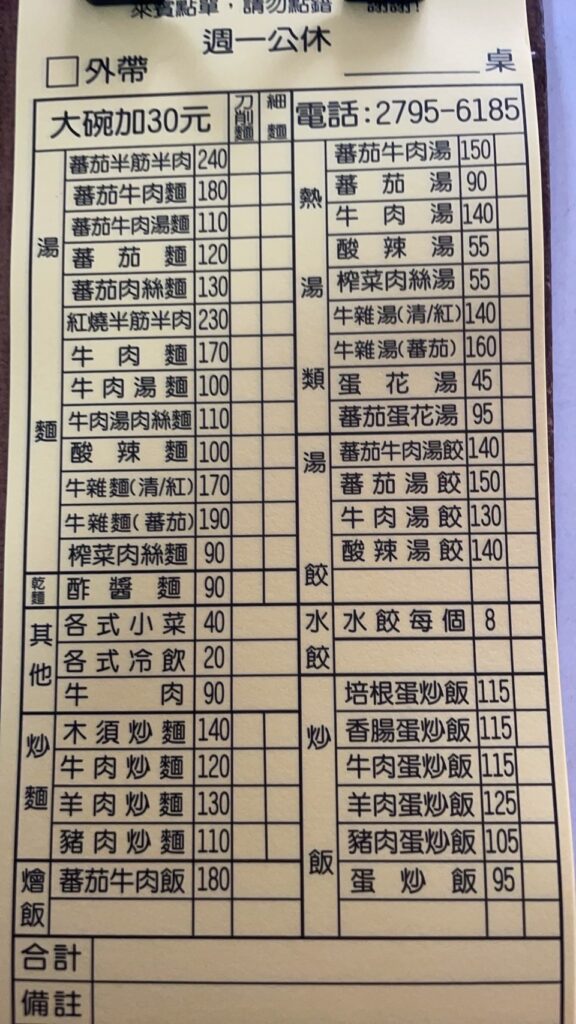 來賓點單，請勿點錯 謝謝!
週一公休
外帶 桌
大碗加30元 刀削麵 細麵 電話:2795-6185
湯麵
蕃茄半筋半肉 240
蕃茄牛肉麵 180
蕃茄牛肉湯麵 110
蕃茄麵 120
蕃茄肉絲麵 130
紅燒半筋半肉 230
牛肉麵 170
牛肉湯麵 100
牛肉湯肉絲麵 110
酸辣麵 100
牛雜麵(清/紅) 170
牛雜麵(蕃茄) 190
榨菜肉絲麵 90
乾麵
酢醬麵 90
其他
各式小菜 40
各式冷飲 20
牛肉 90
炒麵
木須炒麵 140
牛肉炒麵 120
羊肉炒麵 130
豬肉炒麵 110
燴飯
蕃茄牛肉飯 180
熱湯類
蕃茄牛肉湯 150
蕃茄湯 90
牛肉湯 140
酸辣湯 55
榨菜肉絲湯 55
牛雜湯(清/紅) 140
牛雜湯(蕃茄) 160
蛋花湯 45
蕃茄蛋花湯 95
湯餃
蕃茄牛肉湯餃 140
蕃茄湯餃 150
牛肉湯餃 130
酸辣湯餃 140
水餃
水餃每個 8
炒飯
培根蛋炒飯 115
香腸蛋炒飯 115
牛肉蛋炒飯 115
羊肉蛋炒飯 125
豬肉蛋炒飯 105
蛋炒飯 95
合計
備註